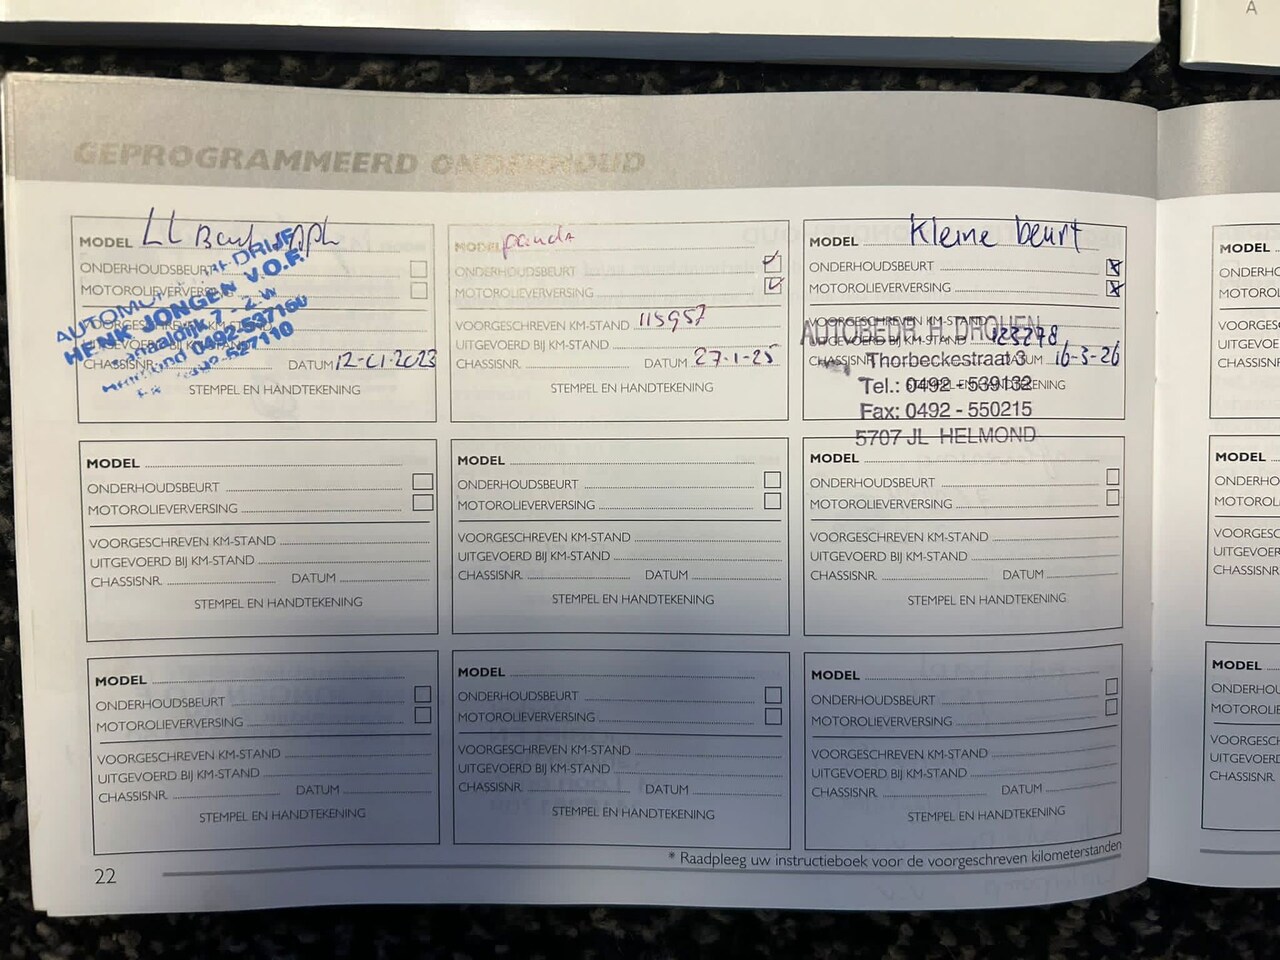 A
GEPROGRAMMEERD ONDERHOUD
MODEL
ONDERHOUDSBEURT
MOTOROLIEVERVERSING
HENK JONGEN V.O.F.
0492-537160
CHASSISNR.
DATUM 12-01-2023
STEMPEL EN HANDTEKENING
MODEL panda
ONDERHOUDSBEURT
MOTOROLIEVERVERSING
VOORGESCHREVEN KM-STAND 115957
UITGEVOERD BIJ KM-STAND
CHASSISNR. DATUM 27-1-25
STEMPEL EN HANDTEKENING
MODEL Kleine beurt
ONDERHOUDSBEURT
MOTOROLIEVERVERSING
VOORGESCHREVEN KM-STAND
AUTOBEDR. H. DROUEN
UITGEVOERD BIJ KM-STAND 123278
CHASSISNR. DATUM 16-3-26
Thorbeckestraat 3
STEMPEL EN HANDTEKENING
Tel.: 0492 - 539132
Fax: 0492 - 550215
5707 JL HELMOND
MODEL
ONDERHO
MOTOROLI
VOORGESC
UITGEVOE
CHASSISNR
MODEL
ONDERHOUDSBEURT
MOTOROLIEVERVERSING
VOORGESCHREVEN KM-STAND
UITGEVOERD BIJ KM-STAND
CHASSISNR. DATUM
STEMPEL EN HANDTEKENING
MODEL
ONDERHOUDSBEURT
MOTOROLIEVERVERSING
VOORGESCHREVEN KM-STAND
UITGEVOERD BIJ KM-STAND
CHASSISNR. DATUM
STEMPEL EN HANDTEKENING
MODEL
ONDERHOUDSBEURT
MOTOROLIEVERVERSING
VOORGESCHREVEN KM-STAND
UITGEVOERD BIJ KM-STAND
CHASSISNR. DATUM
STEMPEL EN HANDTEKENING
MODEL
ONDERHO
MOTOROL
VOORGESC
UITGEVOE
CHASSISNR
MODEL
ONDERHOUDSBEURT
MOTOROLIEVERVERSING
VOORGESCHREVEN KM-STAND
UITGEVOERD BIJ KM-STAND
CHASSISNR. DATUM
STEMPEL EN HANDTEKENING
MODEL
ONDERHOUDSBEURT
MOTOROLIEVERVERSING
VOORGESCHREVEN KM-STAND
UITGEVOERD BIJ KM-STAND
CHASSISNR. DATUM
STEMPEL EN HANDTEKENING
MODEL
ONDERHOUDSBEURT
MOTOROLIEVERVERSING
VOORGESCHREVEN KM-STAND
UITGEVOERD BIJ KM-STAND
CHASSISNR. DATUM
STEMPEL EN HANDTEKENING
MODEL
ONDERHOU
MOTOROLI
VOORGESCH
UITGEVOER
CHASSISNR.
* Raadpleeg uw instructieboek voor de voorgeschreven kilometerstanden
22